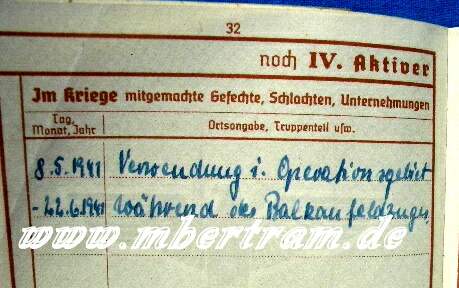 32
noch IV. Aktiver
Im Kriege mitgemachte Gefechte, Schlachten, Unternehmungen
Tag, Monat, Jahr
Ortsangabe, Truppenteil usw.
8.5.1941 Verwendung i. Operationsgebiet
-22.6.1941 während des Balkanfeldzuges.
www.mbertram.de